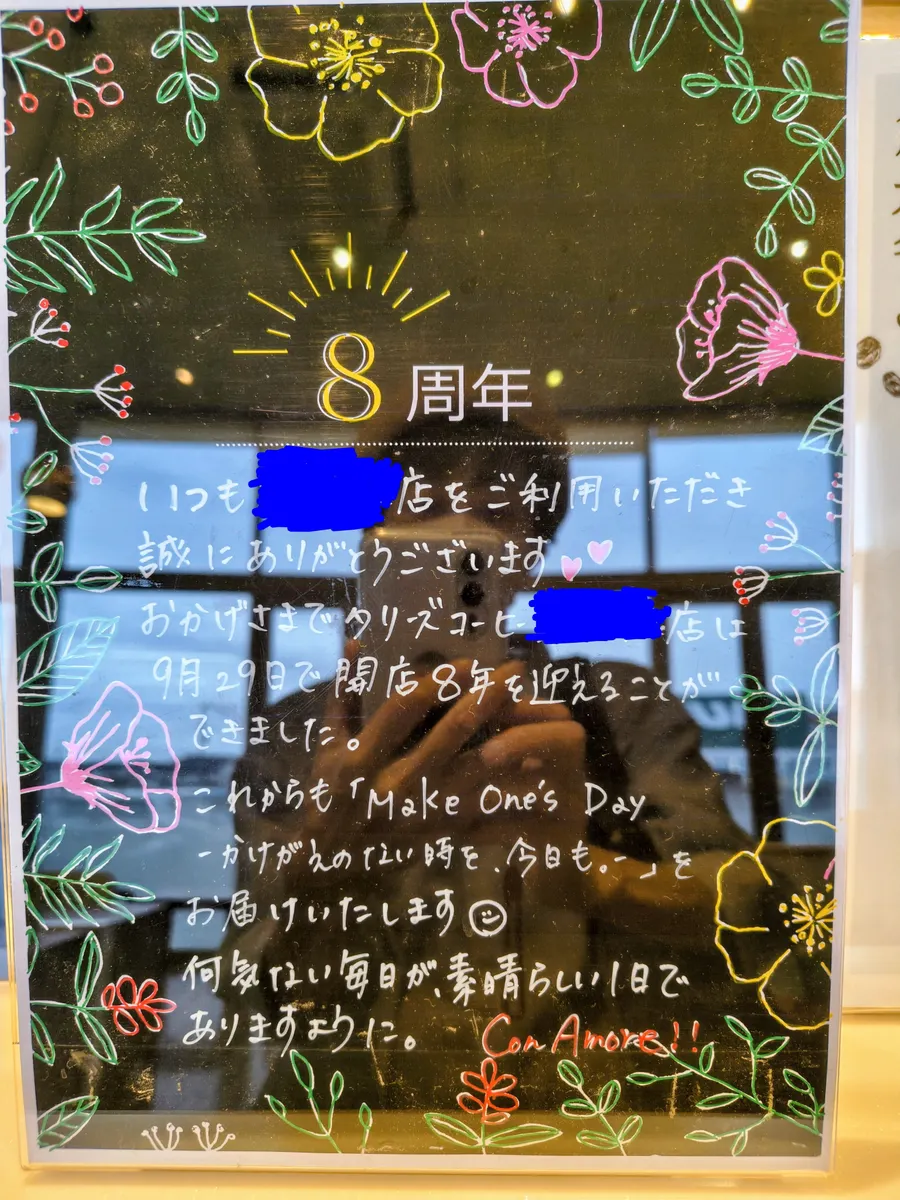 8周年
いつも 店をご利用いただき
誠にありがとうございます
おかげさまでタリーズコーヒー 店は
9月29日で開店8年を迎えることが
できました。
これからも「Make One's Day
－かけがえのない時を、今日も。－」を
お届けいたします
何気ない毎日が、素晴らしい1日で
ありますように。
Con Amore!!